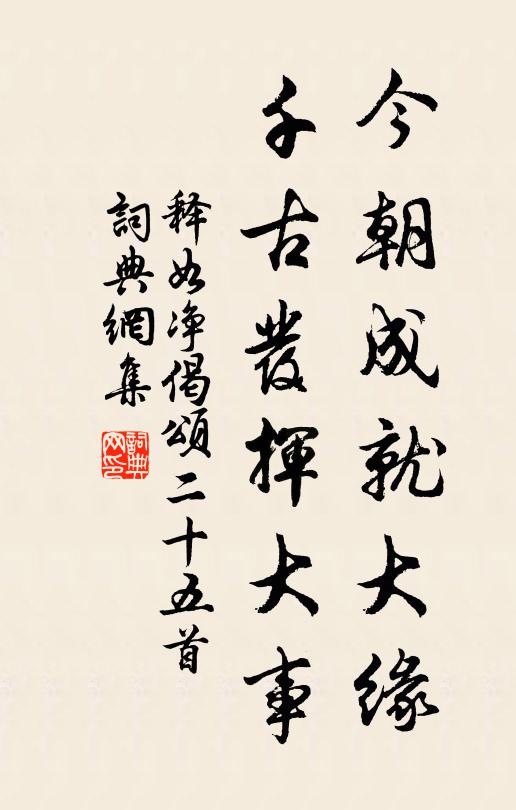 今朝成就大缘
千古發揮大事
释如净偈頌二十五首
詞典網集
詞典網印